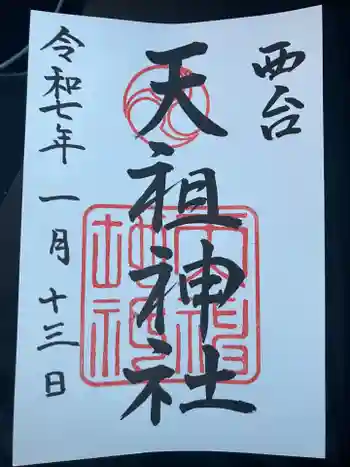 西台
天祖神社
令和七年 一月 十三日
天祖神社